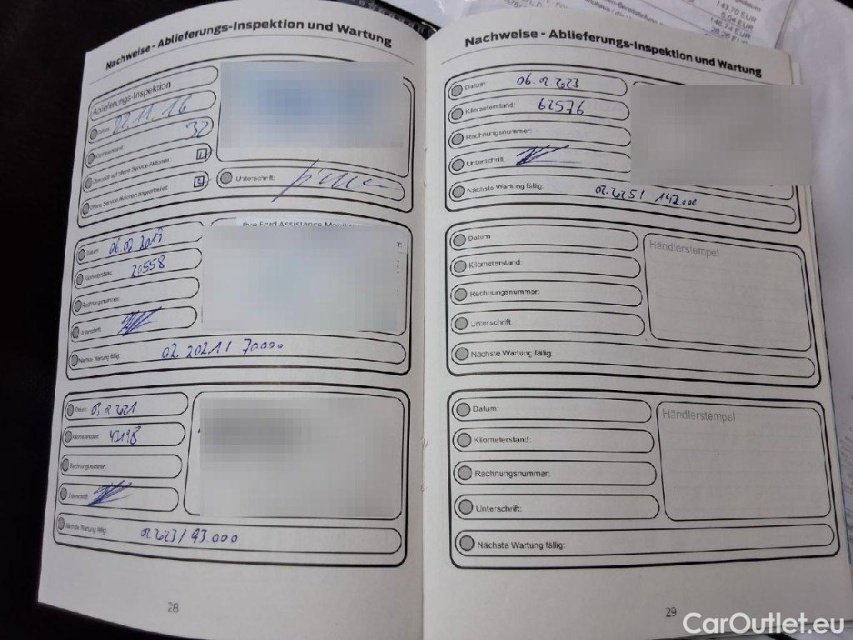 Nachweise - Ablieferungs-Inspektion und Wartung
Ablieferungs-Inspektion
Datum: 22.11.16
32
Unterschrift:
Ihre Ford Assistance
Datum: 06.02.2019
Kilometerstand: 20558
Rechnungsnummer:
Unterschrift:
Nächste Wartung fällig: 02.2021 / 70000
Datum: 03.02.2021
Kilometerstand: 43198
Rechnungsnummer:
Unterschrift:
Nächste Wartung fällig: 02.2023 / 93.000
28
Nachweise - Ablieferungs-Inspektion und Wartung
Datum: 06.02.2023
Kilometerstand: 62576
Rechnungsnummer:
Unterschrift:
Nächste Wartung fällig: 02.2025 / 142.000
Datum:
Kilometerstand:
Rechnungsnummer:
Unterschrift:
Nächste Wartung fällig:
Händlerstempel
Datum:
Kilometerstand:
Rechnungsnummer:
Unterschrift:
Nächste Wartung fällig:
Händlerstempel
29
CarOutlet.eu